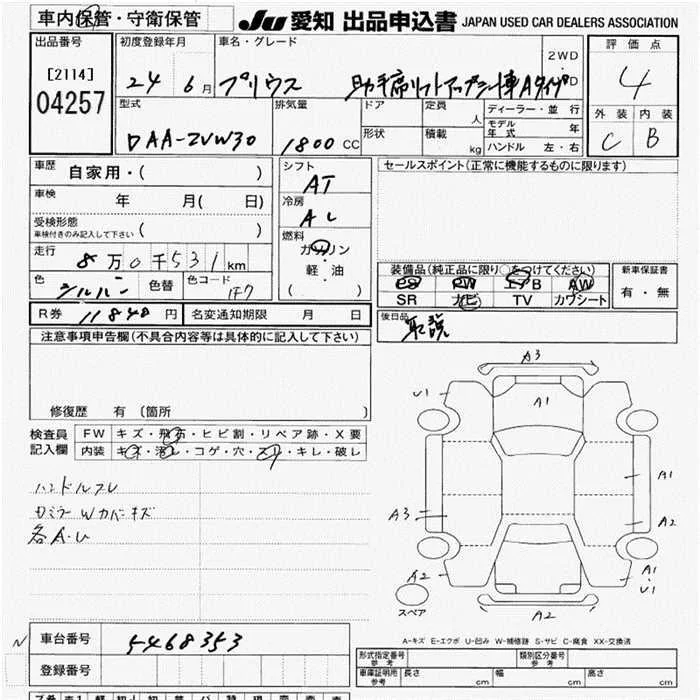 車内保管・守衛保管
JU 愛知 出品申込書 JAPAN USED CAR DEALERS ASSOCIATION
出品番号 初度登録年月 車名・グレード 2WD 評価点
[2114] 24 6月 プリウス 助手席リフトアップシート車Aタイプ ・ D 4
04257
型式 排気量 ドア 定員 人 ディーラー・並行 外装 内装
DAA-ZVW30 1800 CC 形状 積載 kg モデル年式 年 C B
ハンドル 左・右
車歴 自家用・( ) シフト AT セールスポイント(正常に機能するものに限ります)
車検 年 月( 日) 冷房 AC
受検形態 ( )
車検付きのみ記入して下さい
燃料 ガソリン・軽・油 ( )
走行 8万0千531km
色 シルバー 色替 色コード 1F7
装備品(純正品に限り○をつけてください) 新車保証書
PS PW エアB AW 有・無
SR ナビ TV カワシート
R券 11840円 名変通知期限 月 日
後日品 取説
注意事項申告欄(不具合内容等は具体的に記入して下さい)
修復歴 有 (箇所 )
検査員記入欄 FW キズ・飛石・ヒビ割・リペア跡・X要
内装 キズ・汚レ・コゲ・穴・スリ・キレ・破レ
ハンドルスレ
Wカバーキズ
各A・U
A3
U1
A1
A1
A3
A2
A2
A1・U1
A2
スペア
A-キズ E-エクボ U-凹み W-補修跡 S-サビ C-腐食 XX-交換済
N 車台番号 5468353
登録番号
形式指定番号 参考 類別区分番号 参考
車庫証明用 参考 長さ cm 幅 cm 高さ cm